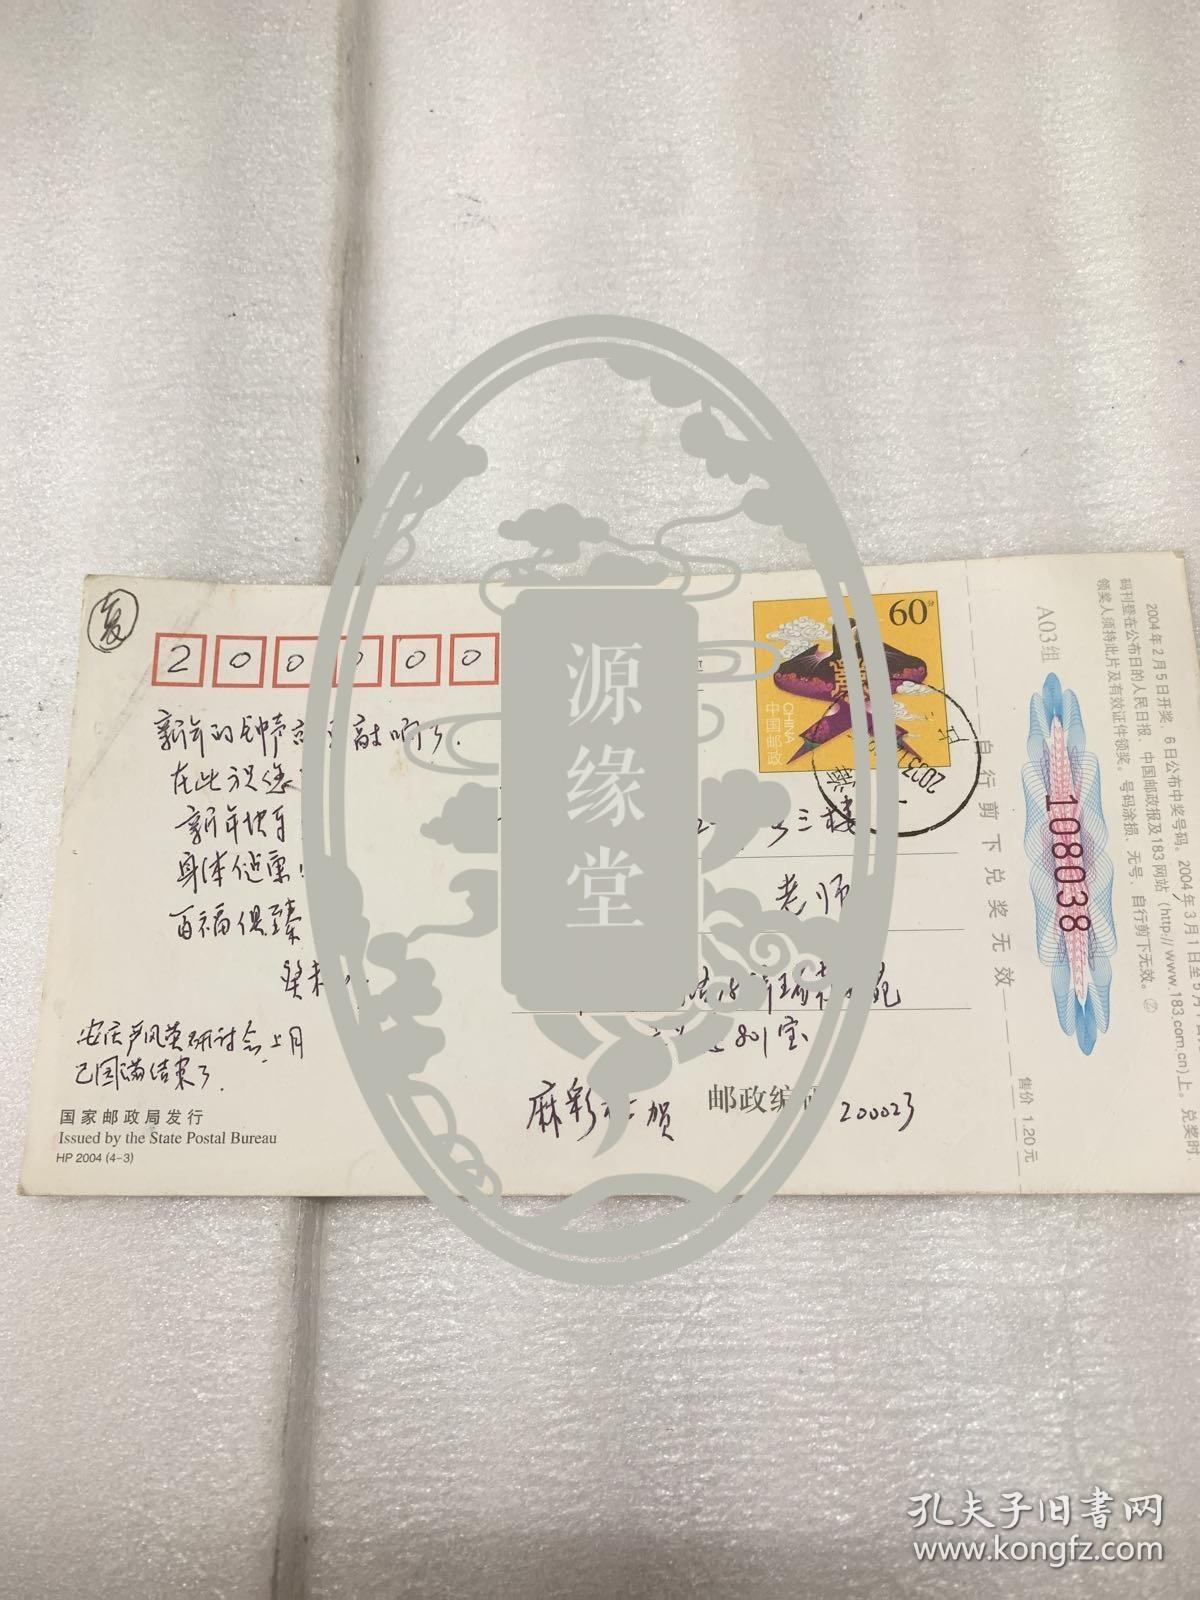 复
2 0 0 0 0 0
新年的钟声 敲响了.
在此祝您
新年快乐
身体健康!
百福俱臻
癸未
安庆严凤英研讨会上月
已圆满结束了.
国家邮政局发行
Issued by the State Postal Bureau
HP 2004 (4-3)
源缘堂
60分
中国邮政
CHINA
2003
三楼
老师
宝
麻彩 贺
邮政编
200023
自行剪下兑奖无效
售价 1.20元
A03组
108038
2004年2月5日开奖 6日公布中奖号码。2004年3月1日至5月
码刊登在公布日的人民日报、中国邮政报及183网站(http://www.183.com.cn)上。兑奖时,
领奖人须持此片及有效证件领奖。号码涂损、无号、自行剪下无效。
孔夫子旧书网
www.kongfz.com